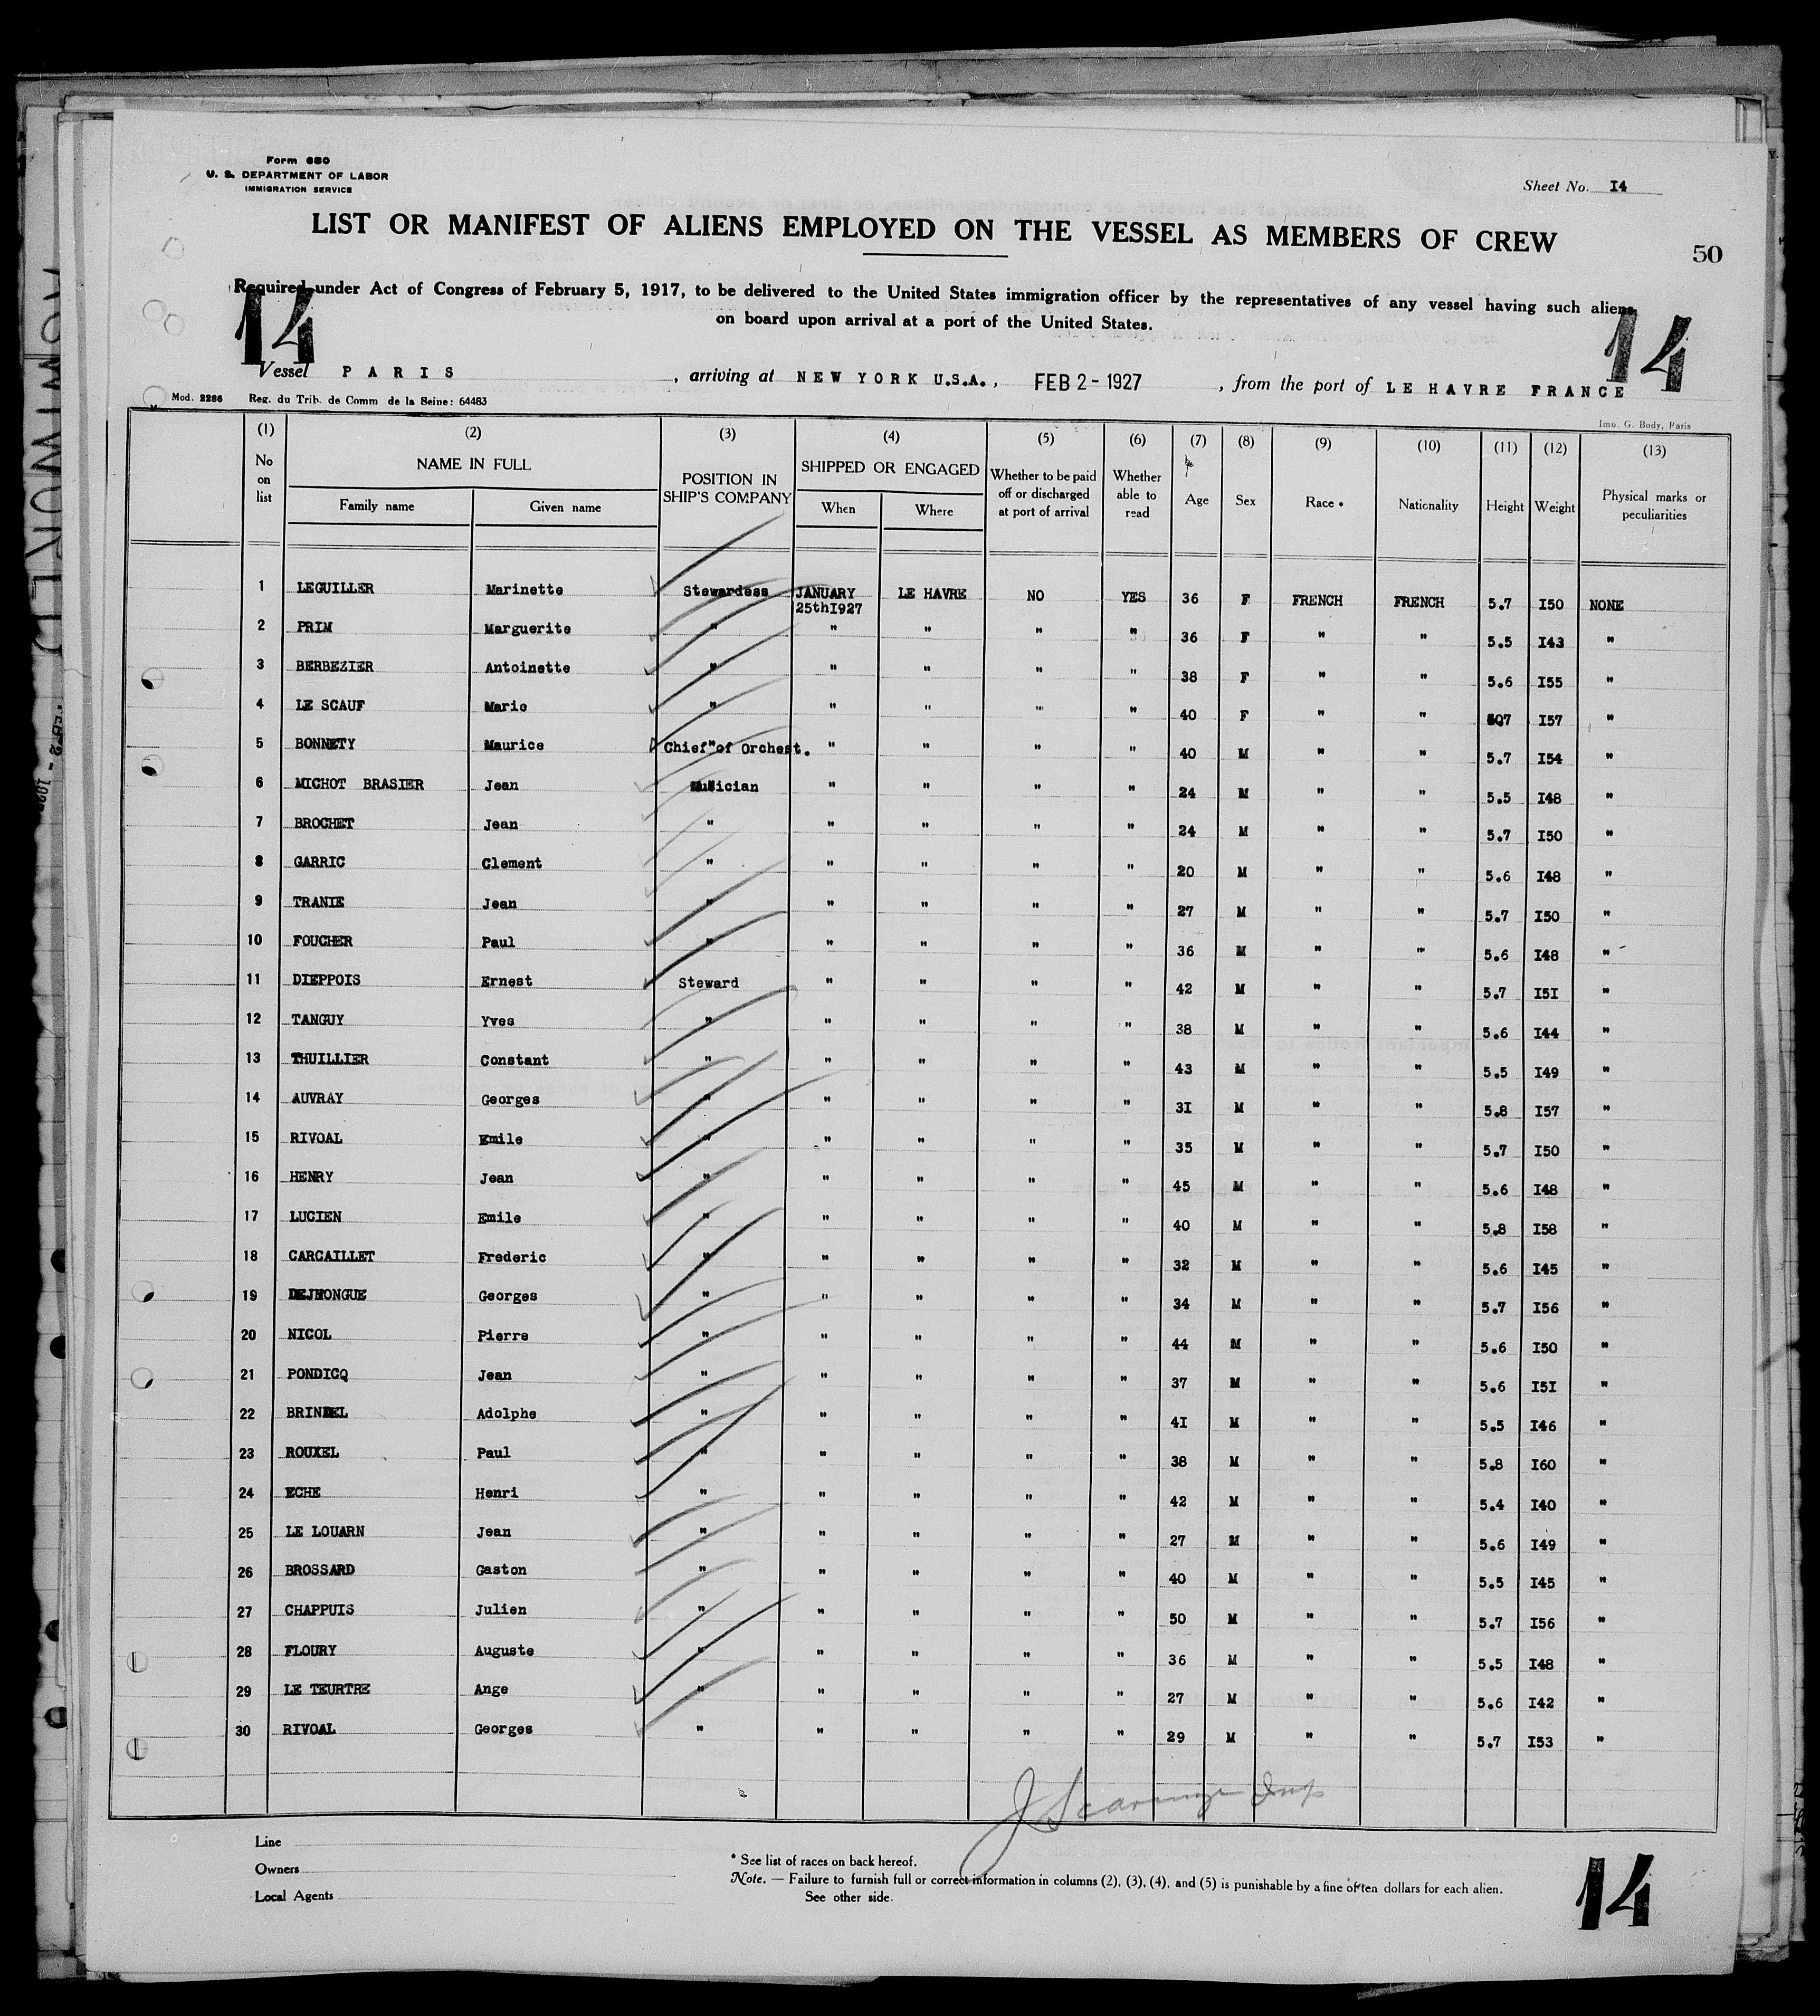 Form 680
U. S. DEPARTMENT OF LABOR
IMMIGRATION SERVICE
Sheet No. I4
LIST OR MANIFEST OF ALIENS EMPLOYED ON THE VESSEL AS MEMBERS OF CREW
50
Required under Act of Congress of February 5, 1917, to be delivered to the United States immigration officer by the representatives of any vessel having such aliens
on board upon arrival at a port of the United States.
14 14
Vessel PARIS, arriving at NEW YORK U.S.A., FEB 2 - 1927, from the port of LE HAVRE FRANCE
Mod. 2286 Reg. du Trib. de Comm de la Seine: 64483
Imp. G. Budy, Paris
(1) (2) (3) (4) (5) (6) (7) (8) (9) (10) (11) (12) (13)
No on list NAME IN FULL Family name Given name POSITION IN SHIP'S COMPANY SHIPPED OR ENGAGED When Where Whether to be paid off or discharged at port of arrival Whether able to read Age Sex Race * Nationality Height Weight Physical marks or peculiarities
1 LEGUILLER Marinette Stewardess JANUARY 25thI927 LE HAVRE NO YES 36 F FRENCH FRENCH 5.7 I50 NONE
2 PRIM Marguerite " " " " " 36 F " " 5.5 I43 "
3 BERBEZIER Antoinette " " " " " 38 F " " 5.6 I55 "
4 LE SCAUF Marie " " " " " 40 F " " 507 I57 "
5 BONNETY Maurice Chief"of Orchest. " " " " 40 M " " 5.7 I54 "
6 MICHOT BRASIER Jean Musician " " " " 24 M " " 5.5 I48 "
7 BROCHET Jean " " " " " 24 M " " 5.7 I50 "
8 GARRIC Clement " " " " " 20 M " " 5.6 I48 "
9 TRANIE Jean " " " " " 27 M " " 5.7 I50 "
10 FOUCHER Paul " " " " " 36 M " " 5.6 I48 "
11 DIEPPOIS Ernest Steward " " " " 42 M " " 5.7 I5I "
12 TANGUY Yves " " " " " 38 M " " 5.6 I44 "
13 THUILLIER Constant " " " " " 43 M " " 5.5 I49 "
14 AUVRAY Georges " " " " " 3I M " " 5.8 I57 "
15 RIVOAL Emile " " " " " 35 M " " 5.7 I50 "
16 HENRY Jean " " " " " 45 M " " 5.6 I48 "
17 LUCIEN Emile " " " " " 40 M " " 5.8 I58 "
18 CARCAILLET Frederic " " " " " 32 M " " 5.6 I45 "
19 Georges " " " " " 34 M " " 5.7 I56 "
20 NICOL Pierre " " " " " 44 M " " 5.6 I50 "
21 PONDICQ Jean " " " " " 37 M " " 5.6 I5I "
22 BRINDEL Adolphe " " " " " 4I M " " 5.5 I46 "
23 ROUXEL Paul " " " " " 38 M " " 5.8 I60 "
24 ECHE Henri " " " " " 42 M " " 5.4 I40 "
25 LE LOUARN Jean " " " " " 27 M " " 5.6 I49 "
26 BROSSARD Gaston " " " " " 40 M " " 5.5 I45 "
27 CHAPPUIS Julien " " " " " 50 M " " 5.7 I56 "
28 FLOURY Auguste " " " " " 36 M " " 5.5 I48 "
29 LE TEURTRE Ange " " " " " 27 M " " 5.6 I42 "
30 RIVOAL Georges " " " " " 29 M " " 5.7 I53 "
Line
Owners
Local Agents
* See list of races on back hereof.
Note. — Failure to furnish full or correct information in columns (2), (3), (4), and (5) is punishable by a fine of ten dollars for each alien.
See other side.
14